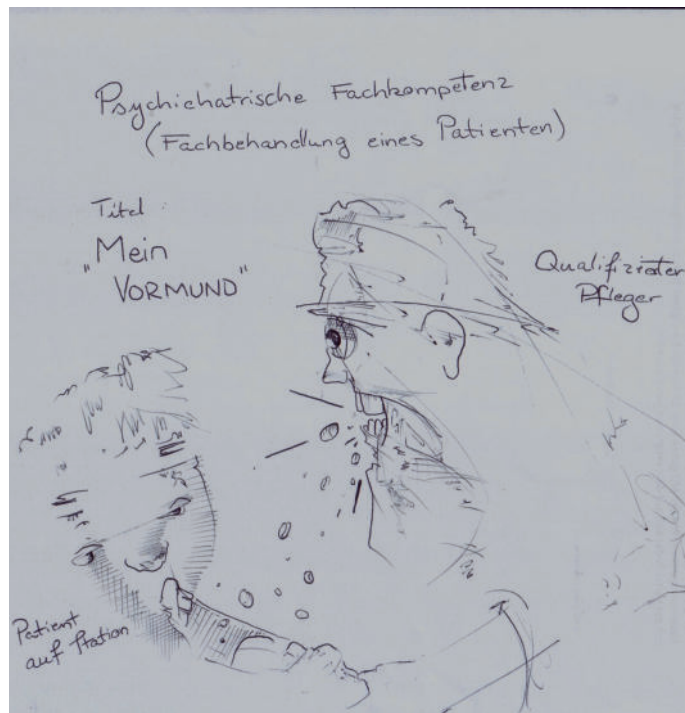 Psychichatrische Fachkompetenz
(Fachbehandlung eines Patienten)
Titel :
"Mein
VORMUND"
Qualifizierter
Pfleger
Patient
auf Station